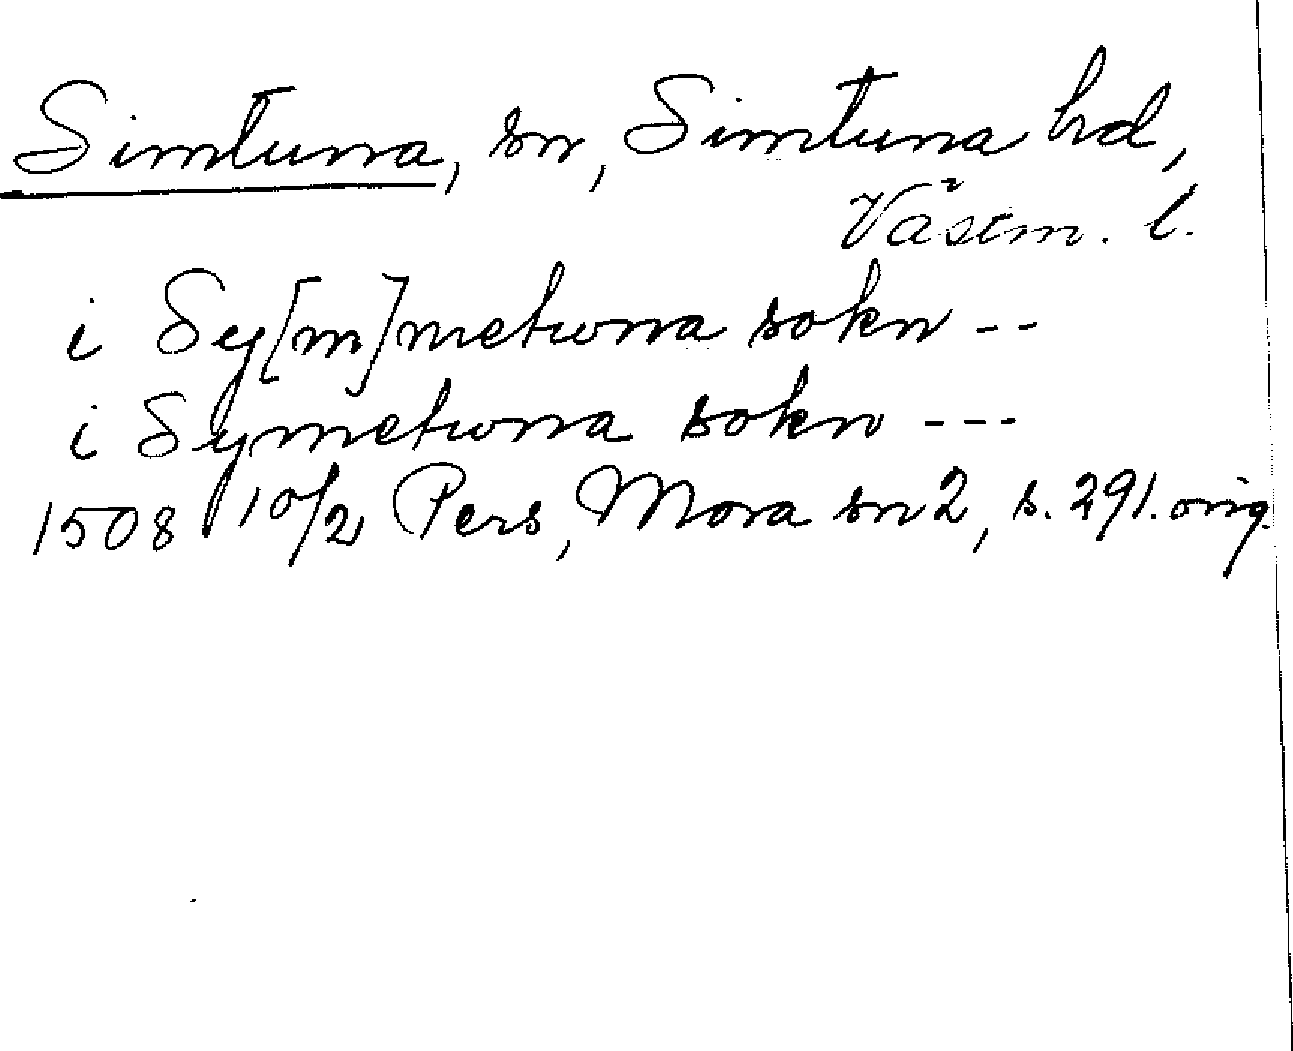 Simtuna, sn, Simtuna hd,
Västm. l.
i Sy[m]metwna sokn --
i Symetwna sokn ---
1508 10/2 Pers, Mora sn 2, s. 291. orig.